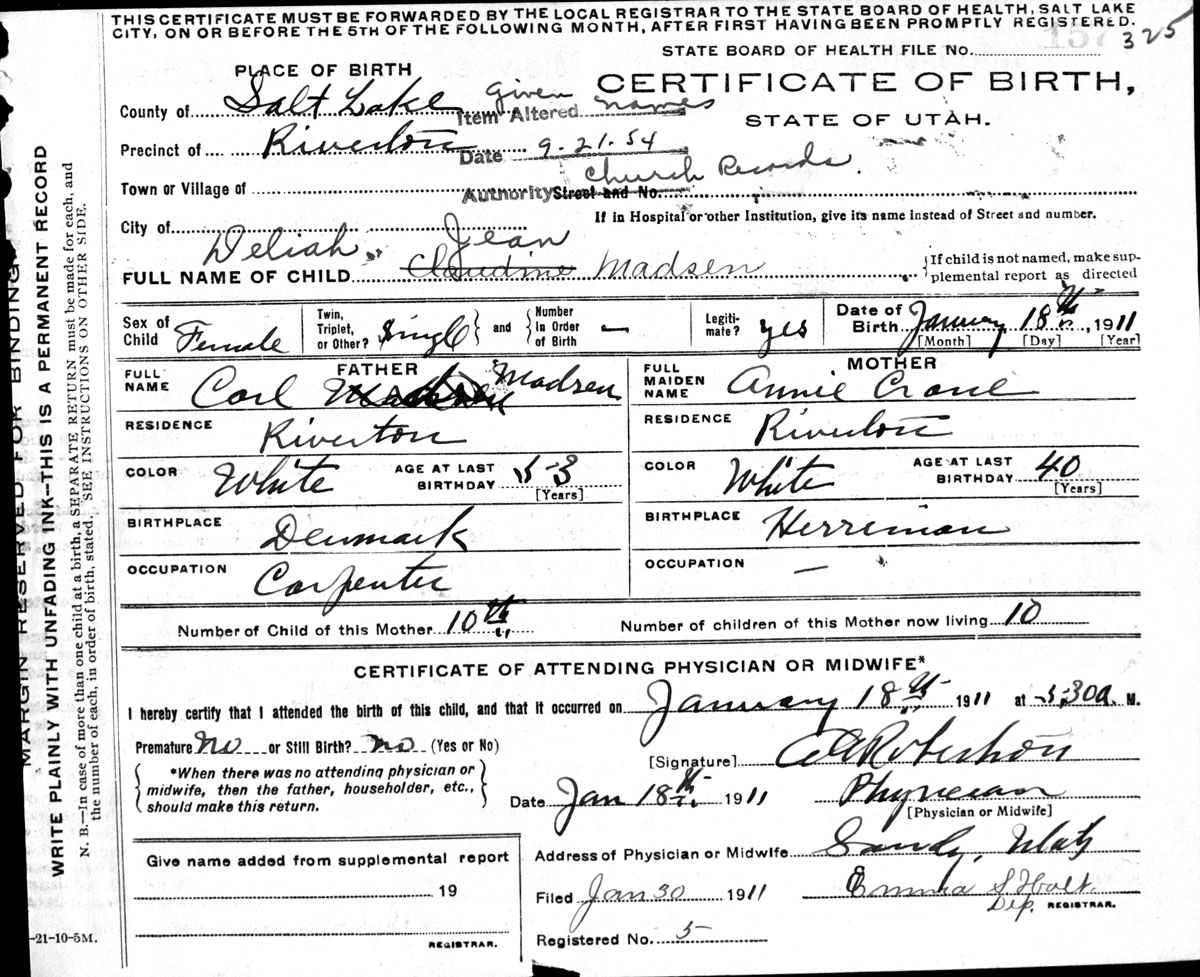 THIS CERTIFICATE MUST BE FORWARDED BY THE LOCAL REGISTRAR TO THE STATE BOARD OF HEALTH, SALT LAKE
CITY, ON OR BEFORE THE 5TH OF THE FOLLOWING MONTH, AFTER FIRST HAVING BEEN PROMPTLY REGISTERED.
157 325
STATE BOARD OF HEALTH FILE No.
PLACE OF BIRTH
CERTIFICATE OF BIRTH,
STATE OF UTAH.
County of Salt Lake
Item Altered given names
Precinct of Riverton
Date 9-21-54
Town or Village of
Authority Church Records.
Street and No.
If in Hospital or other Institution, give its name instead of Street and number.
City of
Deliah Jean
FULL NAME OF CHILD Claudine Madsen
{If child is not named, make sup-
plemental report as directed
Sex of Child Female
Twin, Triplet, or Other? Single } and { Number in Order of Birth —
Legiti-mate? yes
Date of Birth January 18th, 1911
[Month] [Day] [Year]
FATHER
FULL NAME Carl Madsen
RESIDENCE Riverton
COLOR White AGE AT LAST BIRTHDAY 53
[Years]
BIRTHPLACE Denmark
OCCUPATION Carpenter
MOTHER
FULL MAIDEN NAME Annie Crane
RESIDENCE Riverton
COLOR White AGE AT LAST BIRTHDAY 40
[Years]
BIRTHPLACE Herriman
OCCUPATION —
Number of Child of this Mother 10th Number of children of this Mother now living 10
CERTIFICATE OF ATTENDING PHYSICIAN OR MIDWIFE*
I hereby certify that I attended the birth of this child, and that it occurred on January 18th 1911 at 5:30a M.
Premature No or Still Birth? no (Yes or No)
*When there was no attending physician or
midwife, then the father, householder, etc.,
should make this return.
[Signature] Robertson
Date Jan 18th 1911 Physician
[Physician or Midwife]
Give name added from supplemental report
19
REGISTRAR.
Address of Physician or Midwife Sandy, Utah
Filed Jan 30 1911 Emma S Holt.
Dep. REGISTRAR.
Registered No. 5
-21-10-5M.
MARGIN RESERVED FOR BINDING
WRITE PLAINLY WITH UNFADING INK—THIS IS A PERMANENT RECORD
N. B.—In case of more than one child at a birth, a SEPARATE RETURN must be made for each, and
the number of each, in order of birth, stated. SEE INSTRUCTIONS ON OTHER SIDE.